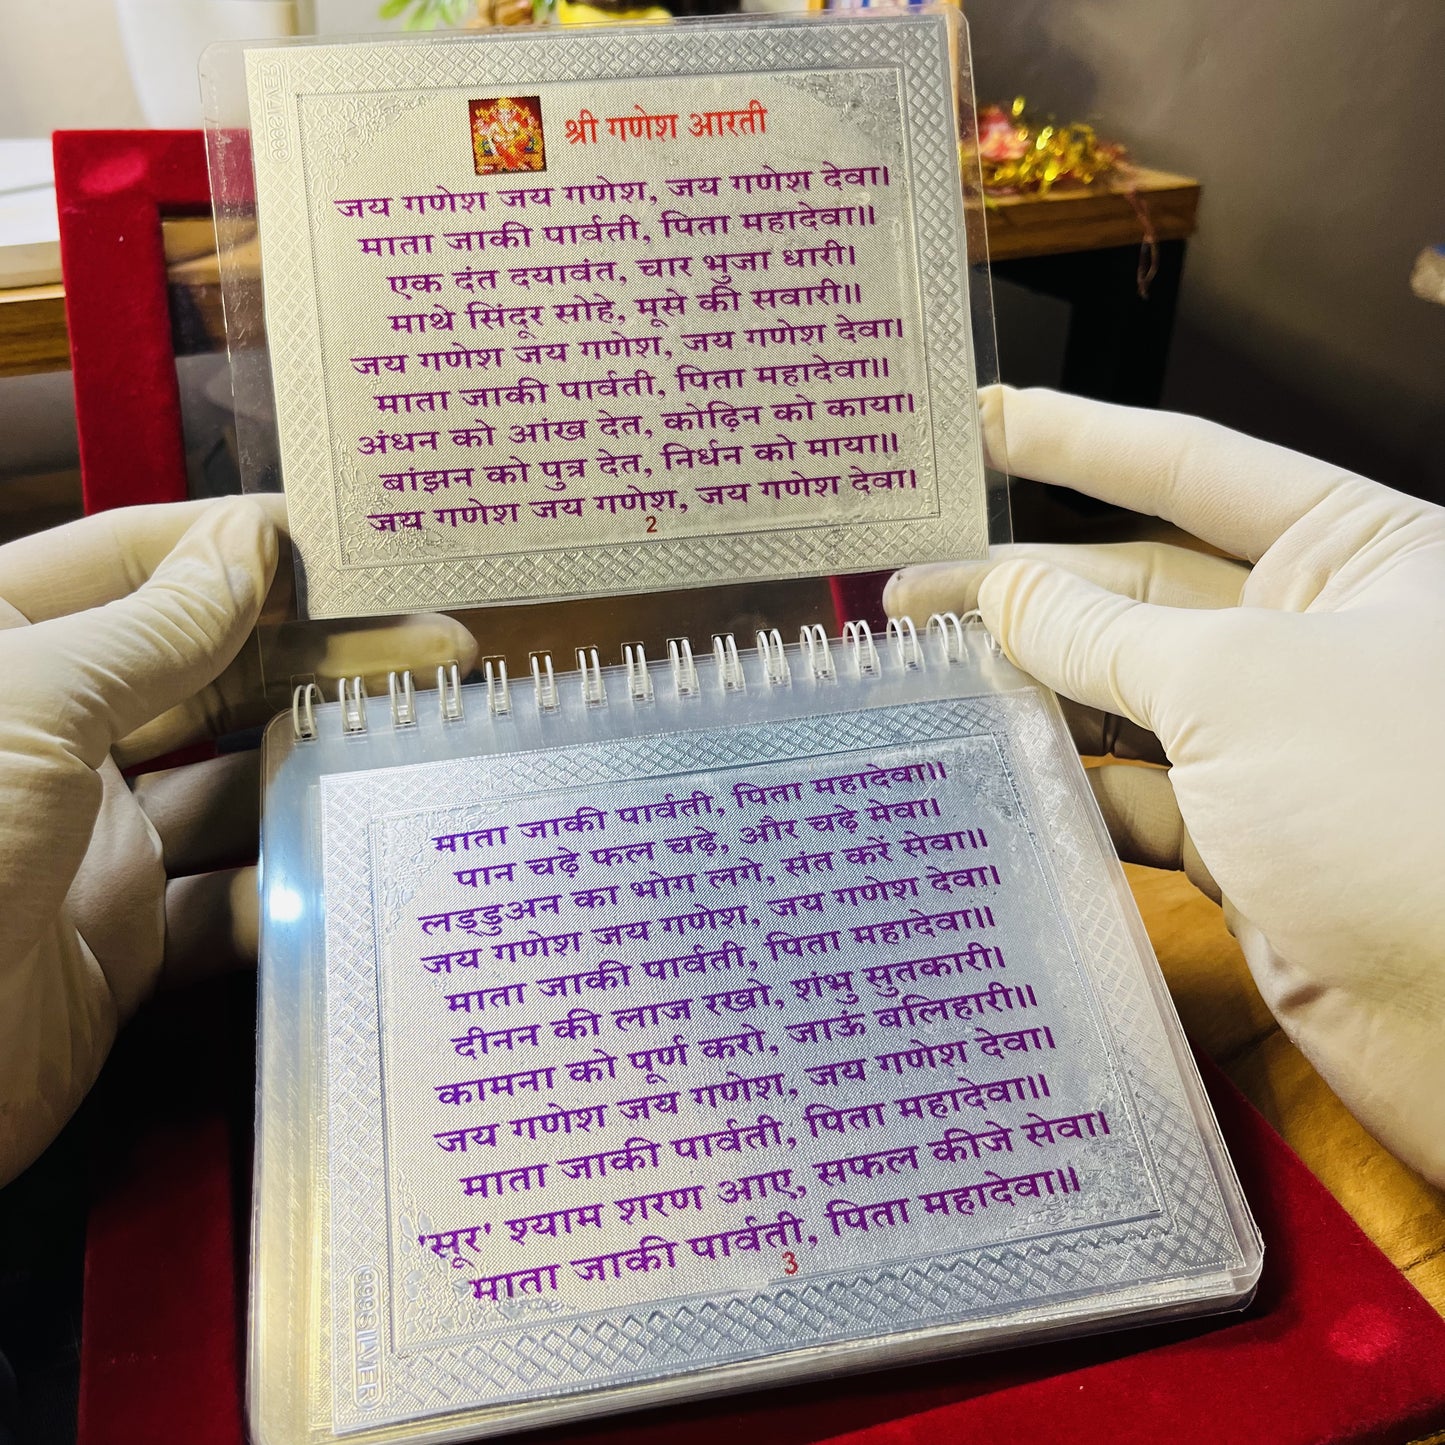 श्री गणेश आरती
जय गणेश जय गणेश, जय गणेश देवा।
माता जाकी पार्वती, पिता महादेवा॥
एक दंत दयावंत, चार भुजा धारी।
माथे सिंदूर सोहे, मूसे की सवारी॥
जय गणेश जय गणेश, जय गणेश देवा।
माता जाकी पार्वती, पिता महादेवा॥
अंधन को आंख देत, कोढ़िन को काया।
बांझन को पुत्र देत, निर्धन को माया॥
जय गणेश जय गणेश, जय गणेश देवा।
2
माता जाकी पार्वती, पिता महादेवा॥
पान चढ़े फल चढ़े, और चढ़े मेवा।
लड्डुअन का भोग लगे, संत करें सेवा॥
जय गणेश जय गणेश, जय गणेश देवा।
माता जाकी पार्वती, पिता महादेवा॥
दीनन की लाज रखो, शंभु सुतकारी।
कामना को पूर्ण करो, जाऊं बलिहारी॥
जय गणेश जय गणेश, जय गणेश देवा।
माता जाकी पार्वती, पिता महादेवा॥
'सूर' श्याम शरण आए, सफल कीजे सेवा।
माता जाकी पार्वती, पिता महादेवा॥
3
999 SILVER